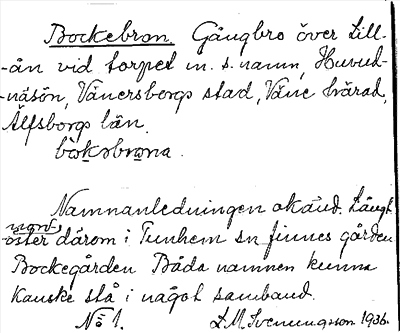 Bockebron. Gångbro över Lill-
-ån vid torpet m. s. namn, Huvud-
-näsön, Vänersborgs stad, Väne härad,
Älfsborgs län.
Namnanledningen okänd. Långt
öster därom i Tunhem sn finnes gården
Bockegården Båda namnen kunna
kanske stå i något samband.
No 1. L.M. Svenungsson 1936.